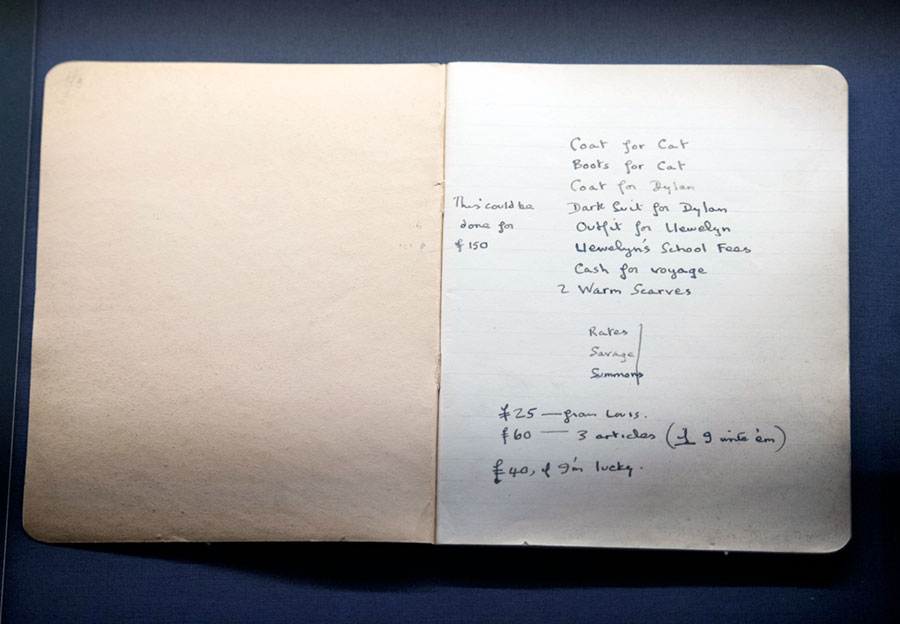 Coat for Cat
Boots for Cat
Coat for Dylan
This could be
done for
£150
Dark Suit for Dylan
Outfit for Llewelyn
Llewelyn's School Fees
Cash for voyage
2 Warm Scarves
Rates
Savage
Summons
£25 — from Louis.
£60 — 3 articles (if I write 'em)
£40, if I'm lucky.